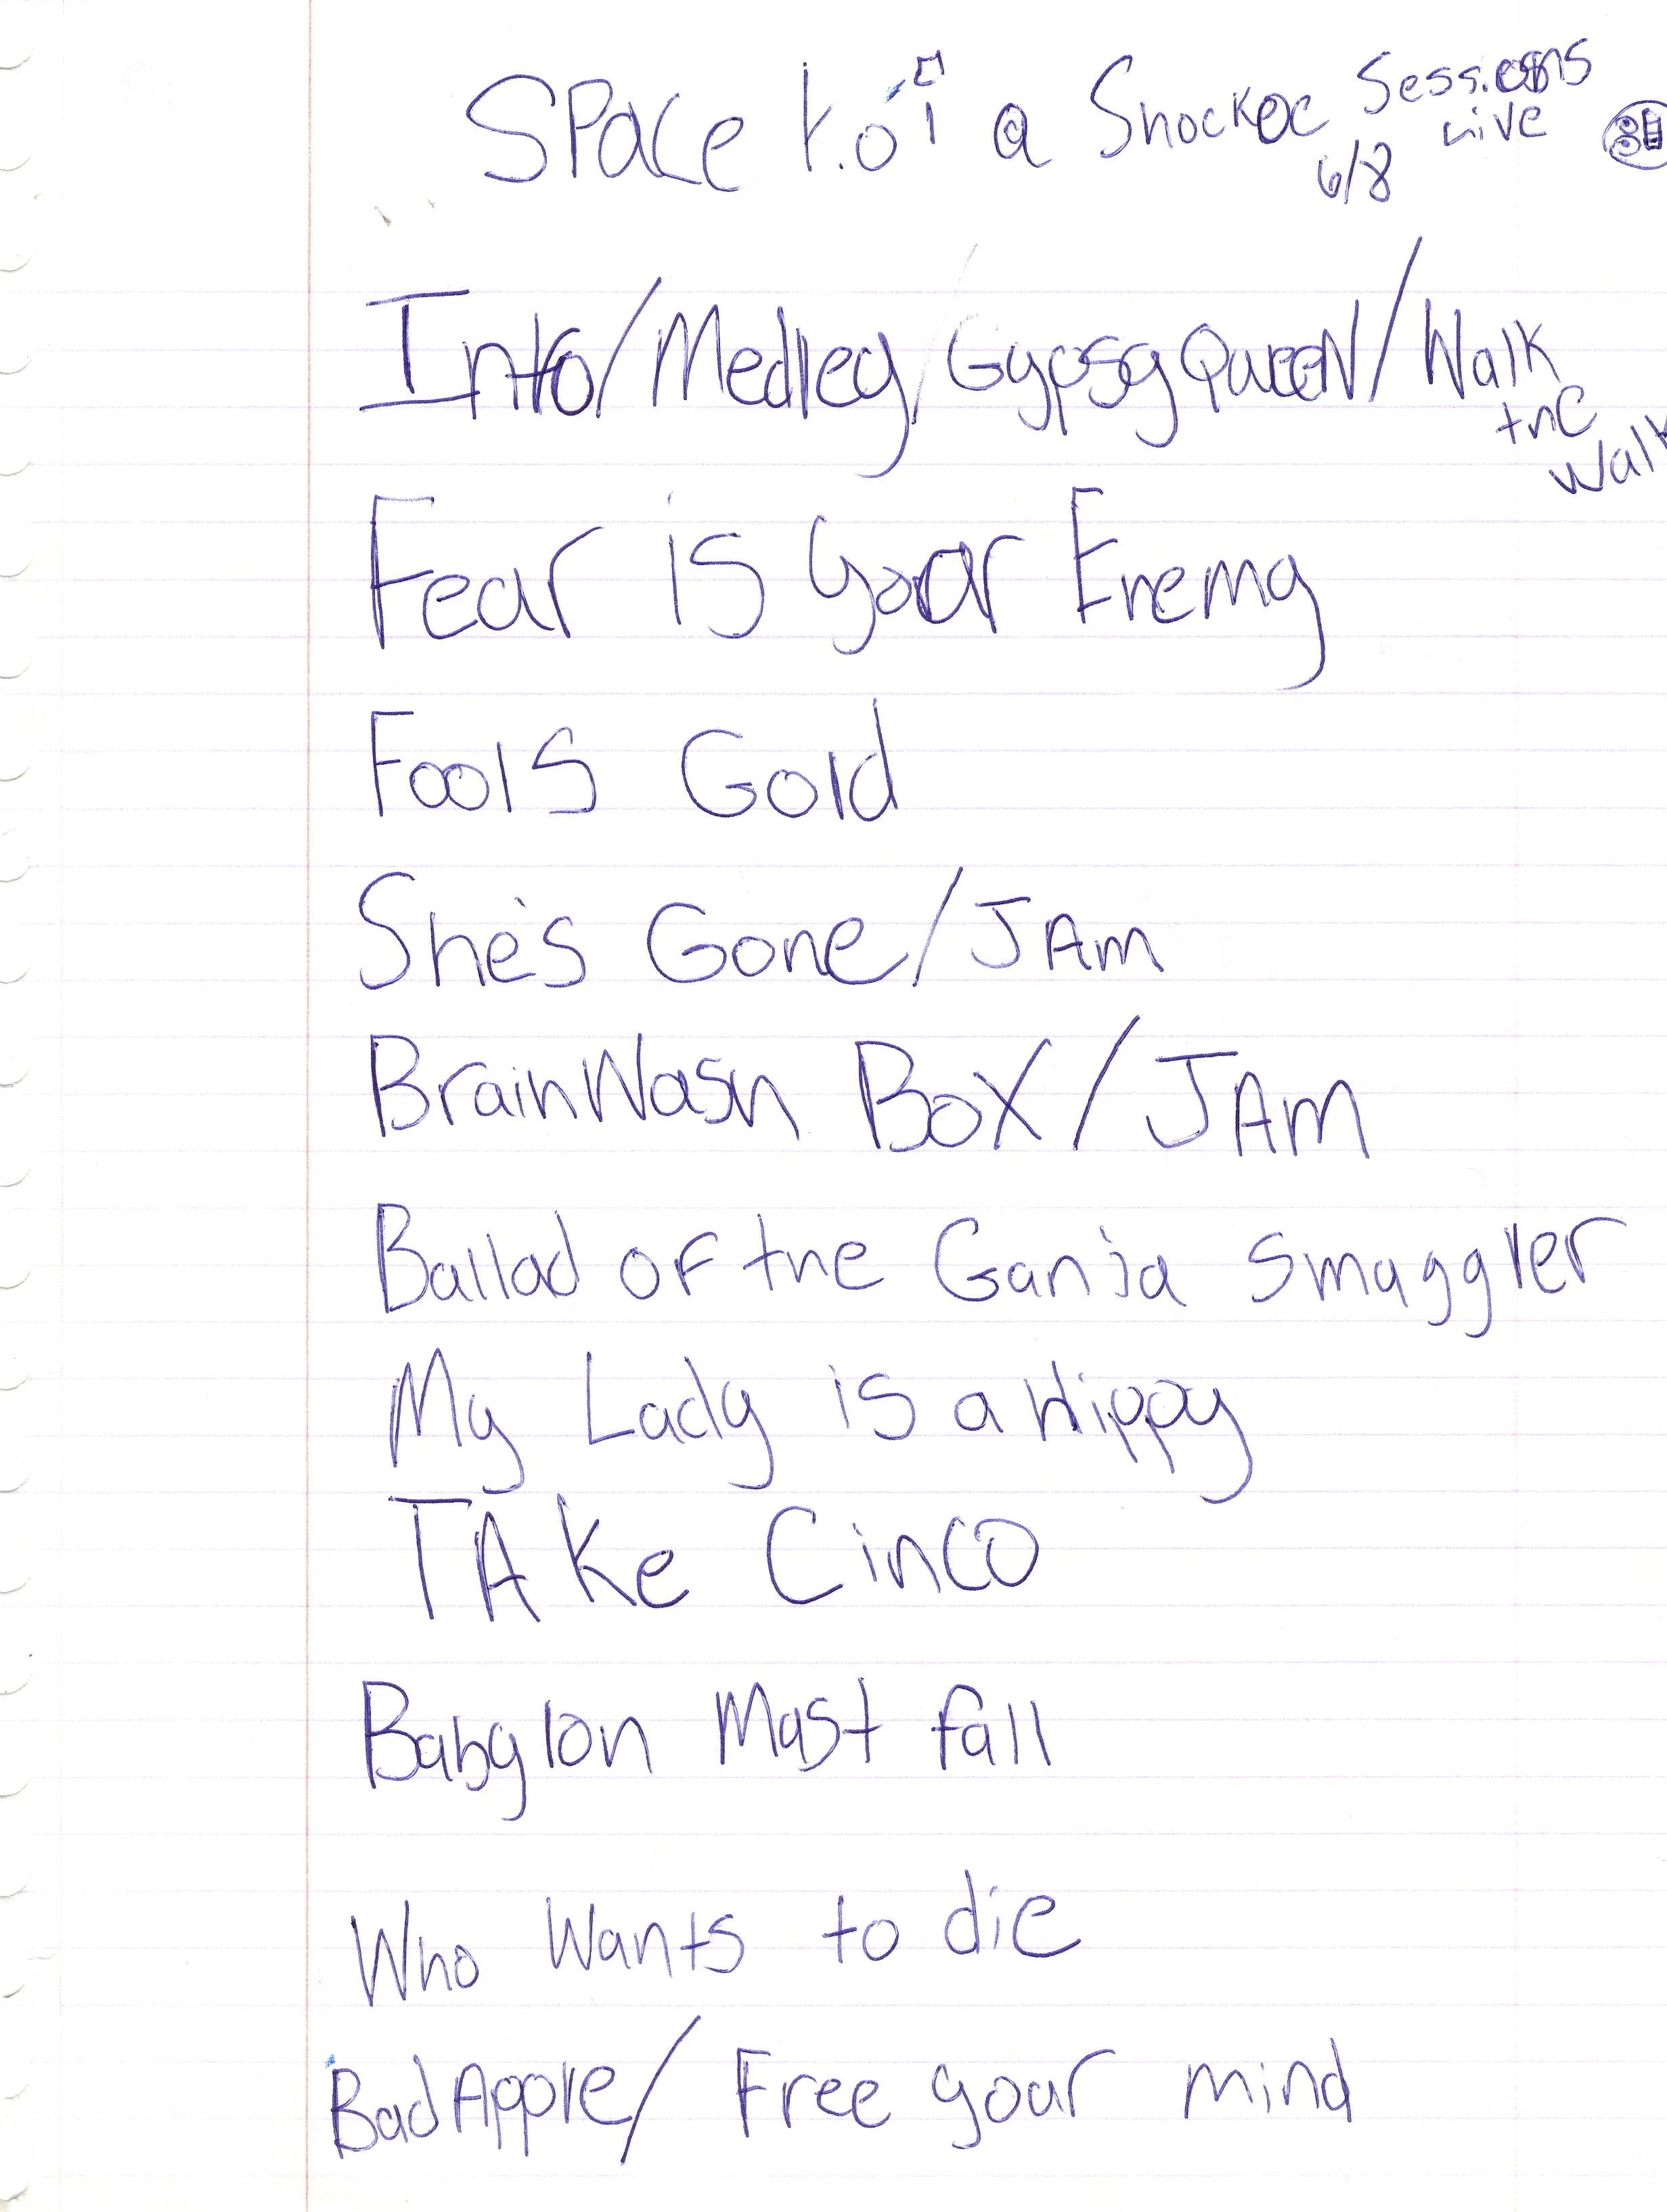 Space Koi @ Shockoe Sessions Live
6/8
Intro/Medley/Gypsy Queen/Walk the Walk
Fear is your Enemy
Fools Gold
She's Gone/JAm
BrainWash Box/JAm
Ballad of the Ganja Smuggler
My Lady is a Hippy
TAke Cinco
Babylon Must fall
Who Wants to die
Bad Apple/Free your mind